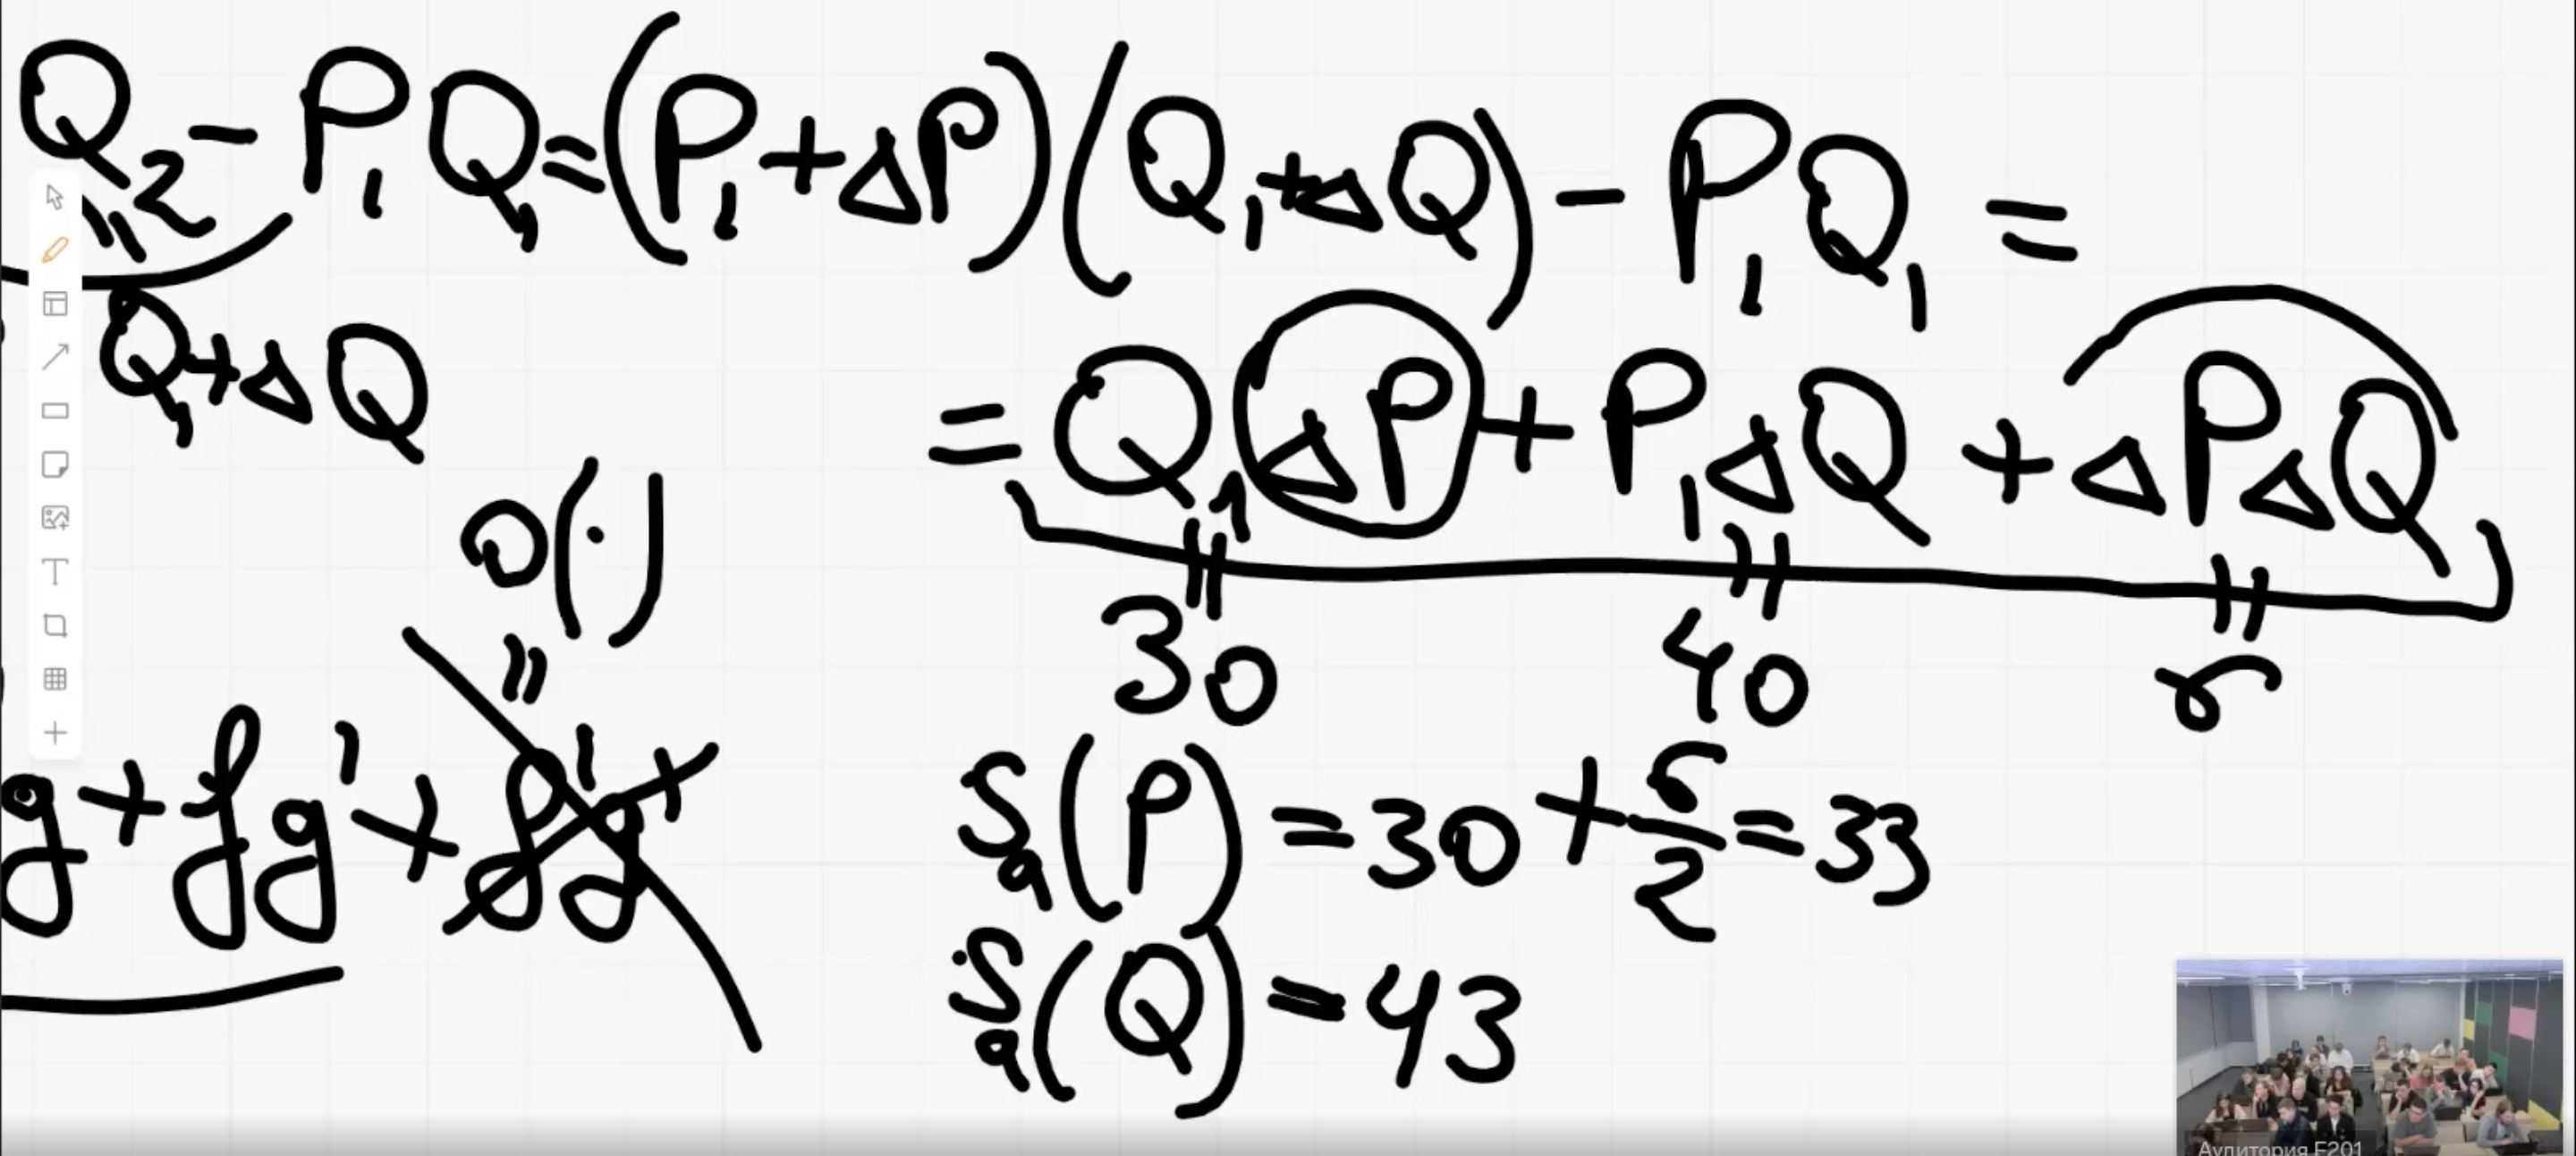 Q₂ - P₁Q₁ = (P₁ + ΔP)(Q₁ + ΔQ) - P₁Q₁ =
Q₁ + ΔQ
= Q₁ΔP + P₁ΔQ + ΔPΔQ
o(·)
30 40 r
g + fg' + f'g'
Sq(P) = 30 + 6/2 = 33
Sq(Q) = 43
T
Аудитория F201